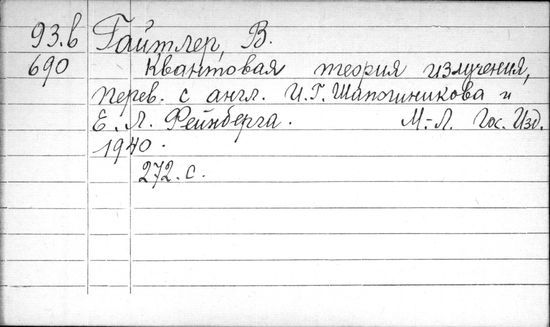 93.в Гайтлер, В.
690 Квантовая теория излучения,
перев. с англ. И.Г. Шапошникова и
Е. Л. Фейнберга. М.-Л. Гос. Изд.
1940.
272. с.